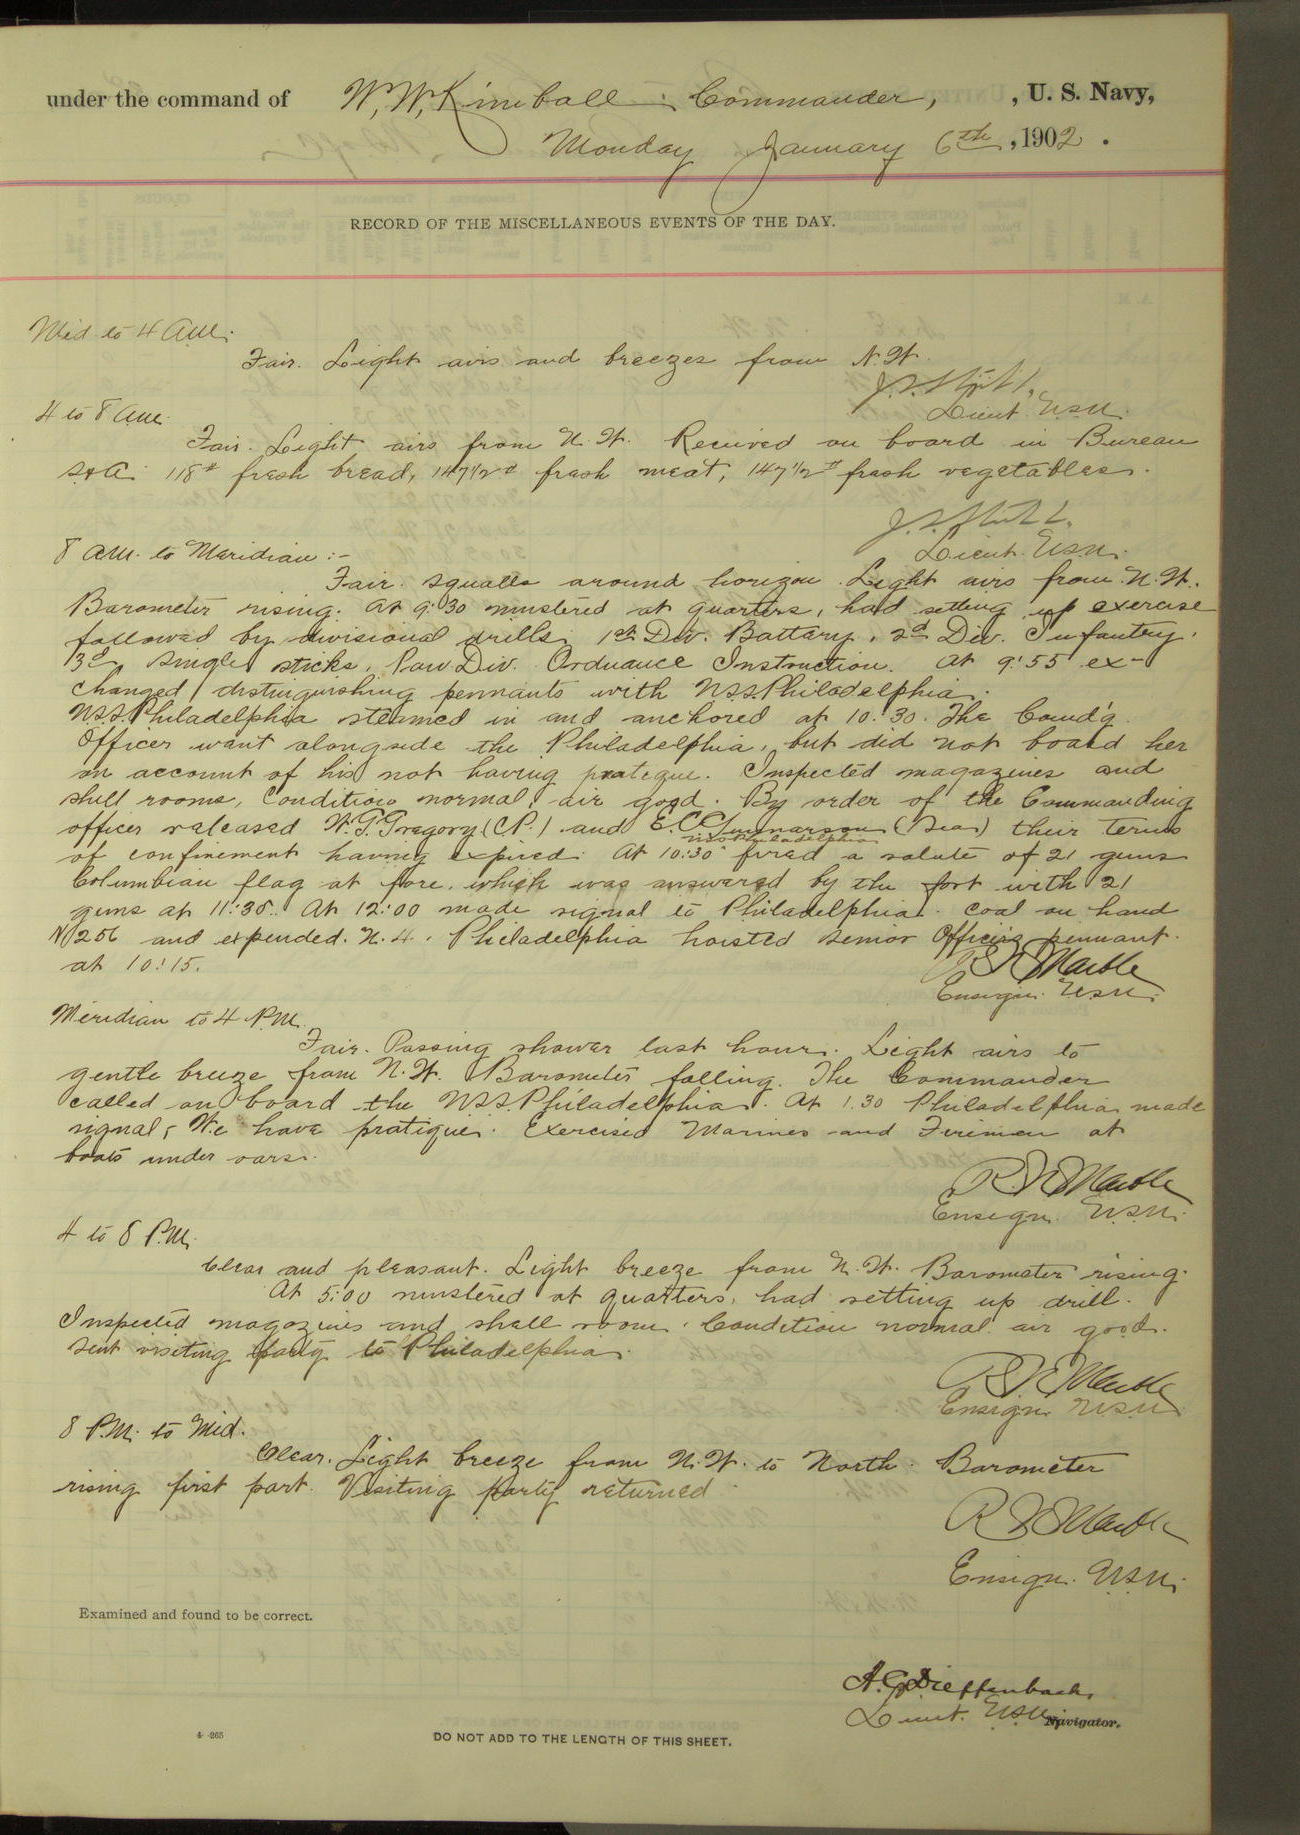 under the command of W. W. Kimball Commander, , U. S. Navy,
Monday January 6th, 1902.
RECORD OF THE MISCELLANEOUS EVENTS OF THE DAY.
Mid to 4 a.m.
Fair. Light airs and breezes from N.W.
Lieut. U.S.N.
4 to 8 a.m.
Fair. Light airs from N.W. Received on board in Bureau
S&A. 118# fresh bread, 147 1/2# fresh meat, 147 1/2# fresh vegetables.
Lieut. U.S.N.
8 a.m. to Meridian:-
Fair. Squalls around horizon. Light airs from N.W.
Barometer rising. At 9:30 mustered at quarters, had setting up exercise
followed by divisional drills, 1st Div. Battery, 2d Div. Infantry,
3d single sticks, Pow Div. Ordnance Instruction. At 9:55 ex-
changed distinguishing pennants with U.S.S. Philadelphia.
U.S.S. Philadelphia steamed in and anchored at 10:30. The Comd'g
Officer went alongside the Philadelphia, but did not board her
on account of his not having pratique. Inspected magazines and
shell rooms, condition normal, air good. By order of the Commanding
officer released W. G. Gregory (C.P.) and E. C. Gunnarson (Sea) their terms
of confinement having expired. At 10:30 U.S.S. Philadelphia fired a salute of 21 guns
Columbian flag at fore, which was answered by the fort with 21
guns at 11:35. At 12:00 made signal to Philadelphia. Coal on hand
N 256 and expended. N. 4. Philadelphia hoisted senior Officers pennant
at 10:15.
R. N. Marble
Ensign U.S.N.
Meridian to 4 P.M.
Fair. Passing shower last hour. Light airs to
gentle breeze from N.W. Barometer falling. The Commander
called on board the U.S.S. Philadelphia. At 1.30 Philadelphia made
signal, We have pratique. Exercised Marines and Firemen at
boats under oars.
R. N. Marble
Ensign U.S.N.
4 to 8 P.M.
Clear and pleasant. Light breeze from N.W. Barometer rising.
At 5:00 mustered at quarters, had setting up drill.
Inspected magazines and shell room. Condition normal air good.
Sent visiting party to Philadelphia.
R. N. Marble
Ensign U.S.N.
8 P.M. to Mid.
Clear. Light breeze from N.W. to North. Barometer
rising first part. Visiting party returned
R. N. Marble
Ensign. U.S.N.
Examined and found to be correct.
A. C. Dieffenbach,
Lieut. U.S.N. Navigator.
4-265
DO NOT ADD TO THE LENGTH OF THIS SHEET.